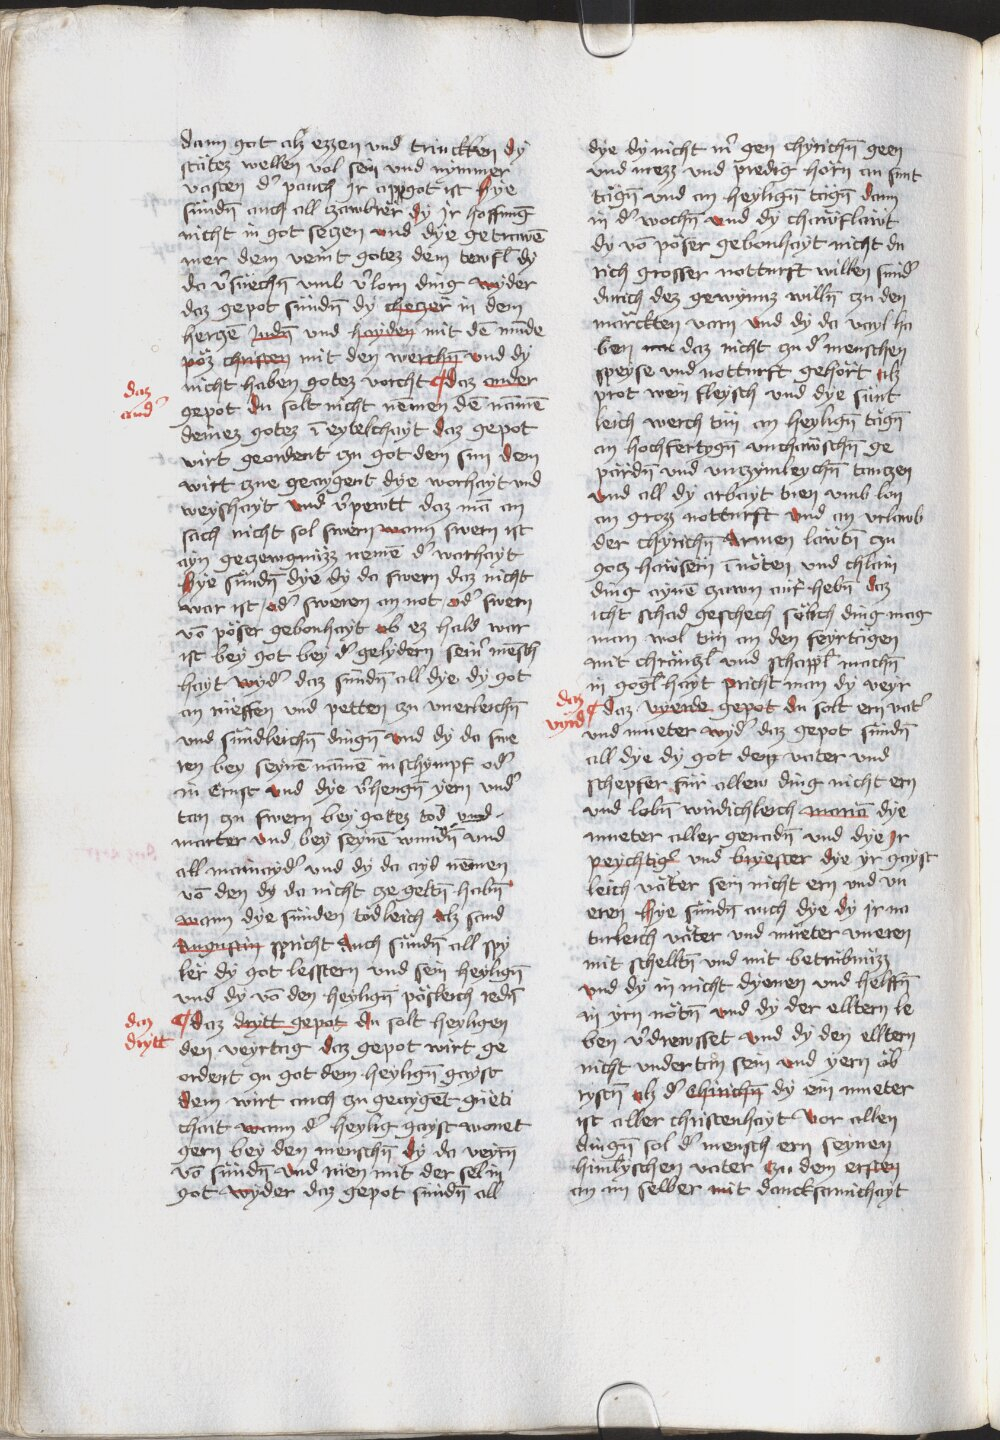 dann got alz ezzen vnd trinckken dy
stätez wellen vol sein vnd nymmer
vasten dʼ pauch Jr appgot ist Hye
sündn̄ auch all czawbrër dy Jr hoffnūg
nicht in got seczen vnd dye getrawē
mer dem veint gotez dem tewfl dy
da vʼsüechn̄ vmb vʼlorn ding wyder
daz gepot sündn̄ dy checzër in dem
herczē Judn̄ vnd hayden mit dē mūde
pöz christen mit den werchn̄ vnd dy
nicht haben gotez vorcht ¶ daz ander
gepot du solt nicht nēmen dē nāmē
deinez gotez ī eytelchayt daz gepot
wirt geordent czu got dem sun dem
wirt czue geaygent dye worhayt vnd
weyshayt vnd vʼpewtt daz mā an
sach nicht sol swern wann swern ist
ayn geczewgnüzz nemē dʼ warhayt
Hye sündn̄ dye dy da swern daz nicht
war ist odʼ sweren an not odʼ swern
vō pöser gebonhayt ob ez hald war
ist bey got bey dʼ gelydern seinʼ mensch
hayt wydʼ daz sündn̄ all dye dy got
an rüeffen vnd petten czu vnerleichn̄
vnd sündleichn̄ dingn̄ vnd dy da swe
ren bey seynē nāmē in schympf odʼ
in Ernst vnd dye vʼhengn̄ yern vndʼ
tan czu swern bey gotez tod vnd
marter vnd bey seynē wundn̄ vnd
all mainaydʼ vnd dy da ayd nēmen
vō den dy da nicht cze geltn̄ habn̄
wann dye sünden tödleich alz sand
Augustin spricht Auch sündn̄ all spy
ler dy got lesstern vnd sein heylign̄
vnd dy vō den heylign̄ pösleich redn̄
¶ daz drytt gepot du solt heyligen
den veyrtag daz gepot wirt ge
ordent czu got dem heylign̄ gayst
dem wirt auch czu geayget güeti
chait wann dʼ heylig gayst wonet
gern bey den menschn̄ dy da veirn̄
vō sündn̄ vnd rüen mit der sel in
got wyder daz gepot sündn̄ all
daz
andʼ
daz
drytt
dye dy nicht inʼ gen chyrichn̄ geen
vnd mezz vnd predig hörn an sunt
tägn̄ vnd an heylign̄ tägn̄ dann
in dʼ wochn̄ vnd dy chawflawt
dy vō pöser gebonhayt nicht du
rich grosser notturft willen sundʼ
durich dez gewynnz willn̄ czu den
märckten varn vnd dy da vayl ha
ben daz nicht czu dʼ menschen
speyse vnd notturft gehört alz
prot wein fleysch vnd dye sünt
leich werch tün an heylign̄ tägn̄
an hochfertygn̄ vnchawschn̄ ge
pärdn̄ vnd vnczymleychn̄ tanczen
vnd all dy arbayt tuen vmb lon
an grozz notturft vnd an vrlawb
der chyrichn̄ Armen läwtn̄ czu
gocz hawsern ī nöten vnd chlain
ding aynē czawn auf hebn̄ daz
icht schad geschech sölich ding mag
man wol tun an den feyrtägen
mit chräntzl vnd schappl machn̄
in gogl hayt pricht man dy veyr
¶ daz vyerde gepot du solt ern vatʼ
vnd mueter wydʼ daz gepot sündn̄
all dye dy got dem vater vnd
schepfer für allew ding nicht ern
vnd lobn̄ wirdichleich mariā dye
mueter aller genadn̄ vnd dye Jr
peychtigʼ vnd bryester dye yr gayst
leich väter sein nicht ern vnd vn
eren Hye sündn̄ auch dye dy ir na
turleich väter vnd müeter vneren
mit scheltn̄ vnd mit betrübnüzz
vnd dy in nicht dyenen vnd helffn̄
in yrn nötn̄ vnd dy der elltern le
ben vʼdrewsset vnd dy den elltern
nicht vndertān sein vnd yern öb
rystn̄ alz dʼ chirichn̄ dy ein mueter
ist aller christenhayt Vor allen
dingn̄ sol dʼ mensch ern seynen
himlyschen vater czu dem ersten
an im selber mit dancksamichayt
daz
vyrd